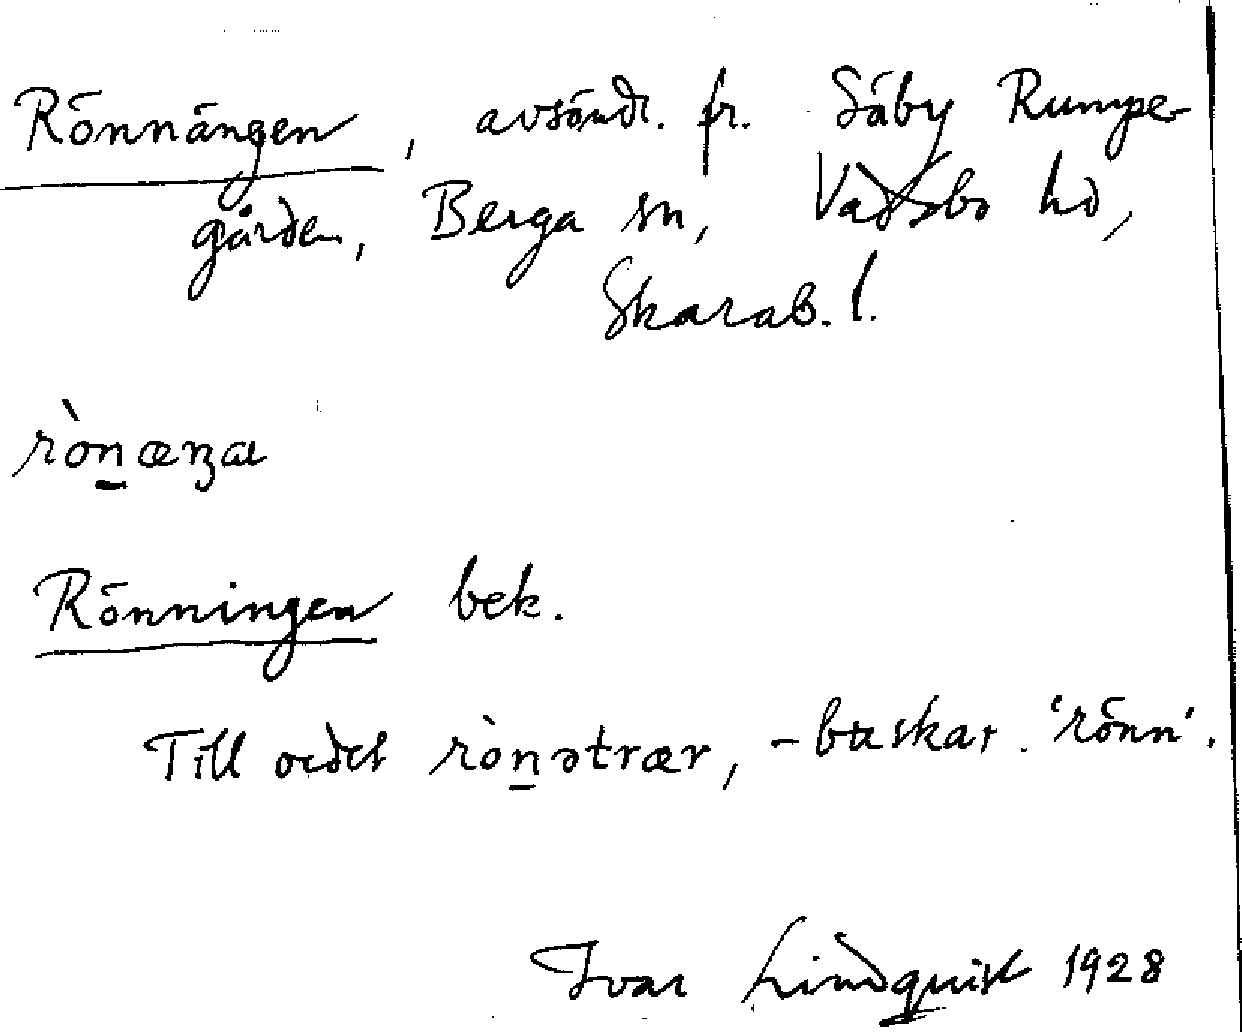 Rönnängen, avsöndr. fr. Säby Rumpe-
gården, Berga sn, Vadsbo hd,
Skarab. l.
rònæŋa
Rönningen bek.
Till ordet rònətrær, -buskar. 'rönn'.
Ivar Lindquist 1928